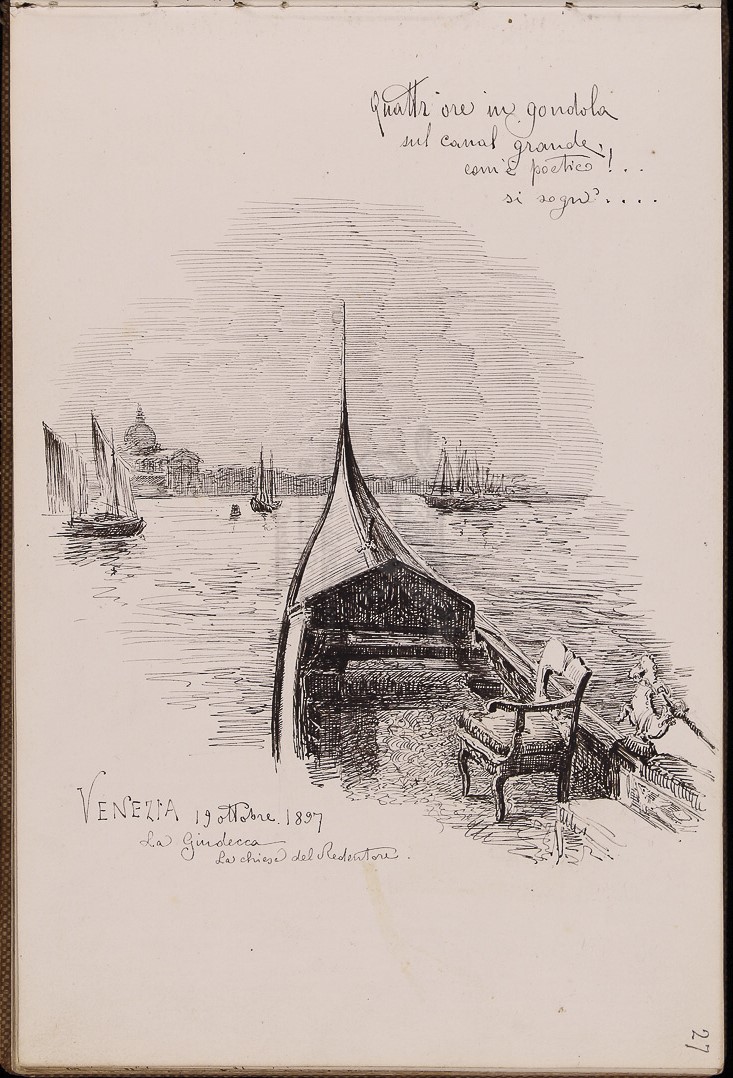 Quattr'ore in gondola
sul canal grande,
com'è poetico!...
si sogna....
VENEZIA 19 ottobre 1897
La Giudecca
La chiesa del Redentore.
27